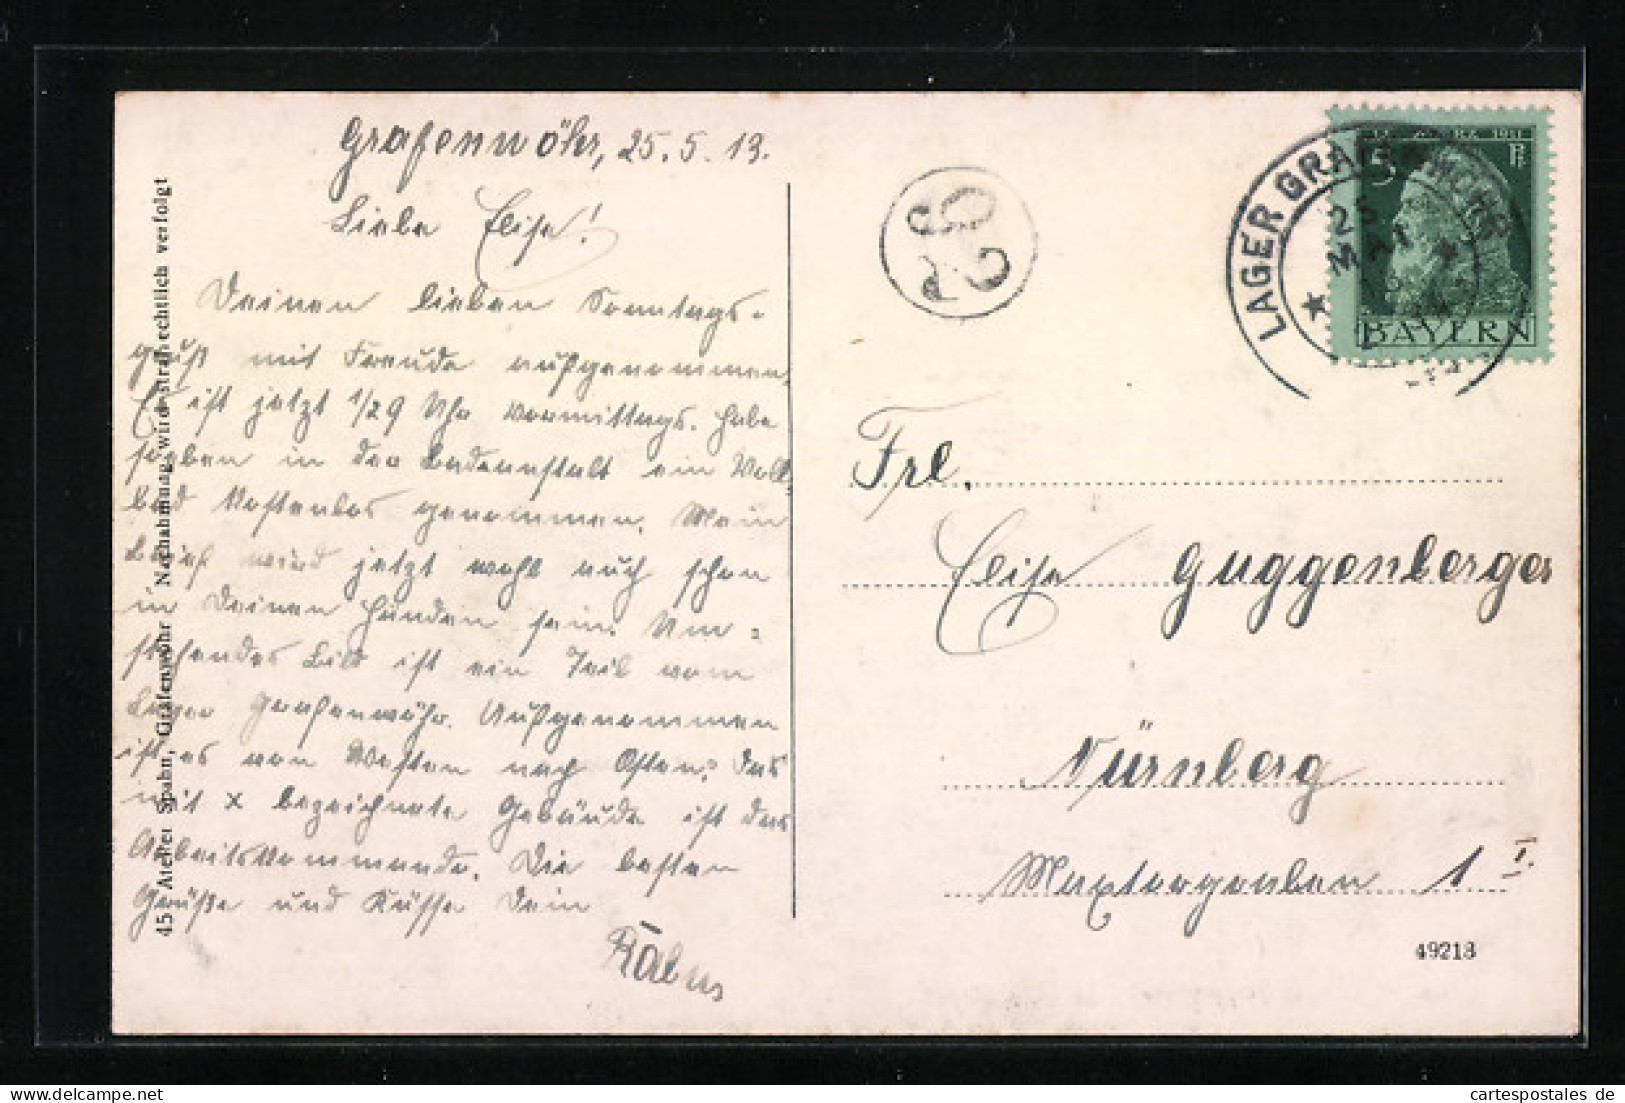 Grafenwöhr, 25.5.13.
Liebe Elise!
Deinen lieben Sonntags-
gruß mit Freude aufgenommen.
Es ist jetzt 1/29 Uhr vormittags. Habe
soeben in der Badeanstalt ein Voll-
bad kostenlos genommen. Mein
Brief wird jetzt wohl auch schon
in Deinen Händen sein. Um-
stehendes Bild ist ein Teil vom
Lager Grafenwöhr. Aufgenommen
ist es von Westen nach Osten. Das
mit x bezeichnete Gebäude ist das
Arbeitskommando. Die besten
Grüße und Küsse Dein
45 Atelier Spahn, Grafenwöhr Nachahmung wird strafrechtlich verfolgt
LAGER GRAFENWÖHR
25
MAI
5 Pf
1911
BAYERN
Frl.
Elise Guggenberger
Nürnberg
Maxtorgraben 1 I.
49218
cartespostales.de